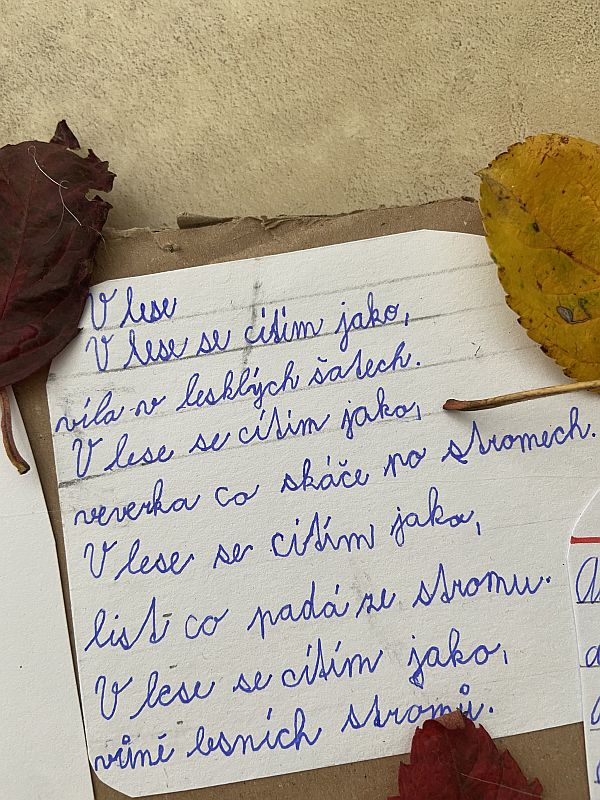 V lese
V lese se cítím jako,
víla v lesklých šatech.
V lese se cítím jako,
veverka co skáče po stromech.
V lese se cítím jako,
list co padá ze stromu.
V lese se cítím jako,
vůně lesních stromů.